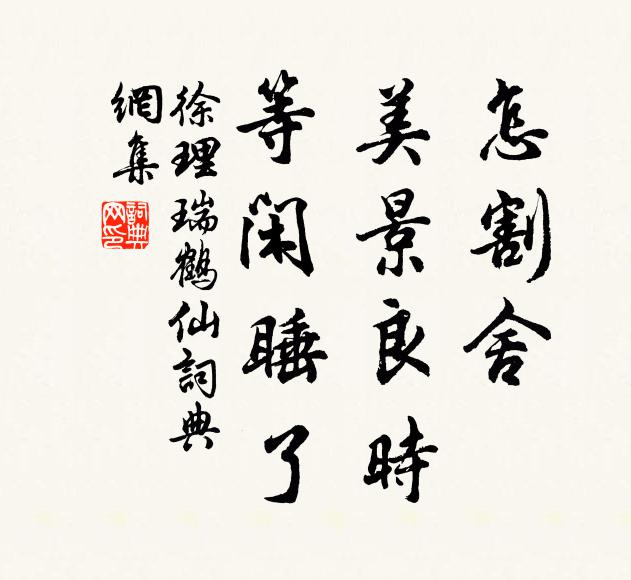 怎割舍
美景良時
等閑睡了
徐理瑞鶴仙詞典
網集
詞典
网印